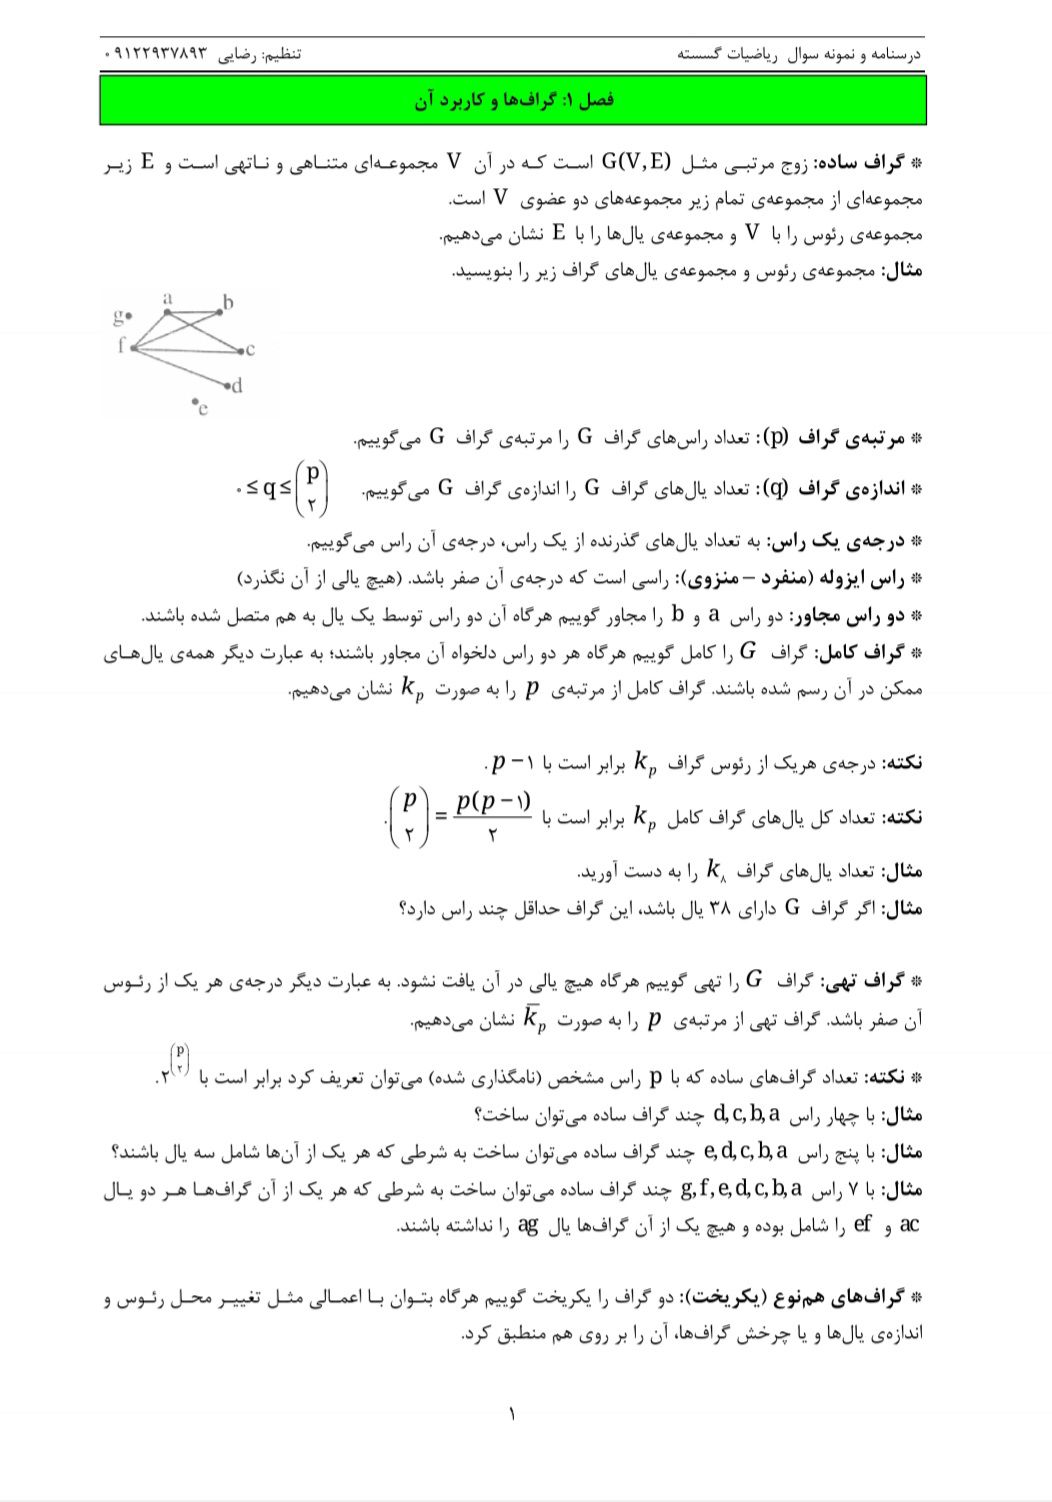 درسنامه و نمونه سوال ریاضیات گسسته
تنظیم: رضایی ۰۹۱۲۲۹۳۷۸۹۳
فصل ۱: گراف‌ها و کاربرد آن
* گراف ساده: زوج مرتبی مثل G(V,E) است که در آن V مجموعه‌ای متناهی و ناتهی است و E زیر
مجموعه‌ای از مجموعه‌ی تمام زیر مجموعه‌های دو عضوی V است.
مجموعه‌ی رئوس را با V و مجموعه‌ی یال‌ها را با E نشان می‌دهیم.
مثال: مجموعه‌ی رئوس و مجموعه‌ی یال‌های گراف زیر را بنویسید.
a
b
g
f
c
d
e
* مرتبه‌ی گراف (p): تعداد راس‌های گراف G را مرتبه‌ی گراف G می‌گوییم.
* اندازه‌ی گراف (q): تعداد یال‌های گراف G را اندازه‌ی گراف G می‌گوییم. ۰ ≤ q ≤ (p ۲)
* درجه‌ی یک راس: به تعداد یال‌های گذرنده از یک راس، درجه‌ی آن راس می‌گوییم.
* راس ایزوله (منفرد – منزوی): راسی است که درجه‌ی آن صفر باشد. (هیچ یالی از آن نگذرد)
* دو راس مجاور: دو راس a و b را مجاور گوییم هرگاه آن دو راس توسط یک یال به هم متصل شده باشند.
* گراف کامل: گراف G را کامل گوییم هرگاه هر دو راس دلخواه آن مجاور باشند؛ به عبارت دیگر همه‌ی یال‌های
ممکن در آن رسم شده باشند. گراف کامل از مرتبه‌ی p را به صورت k_p نشان می‌دهیم.
نکته: درجه‌ی هریک از رئوس گراف k_p برابر است با p − ۱ .
نکته: تعداد کل یال‌های گراف کامل k_p برابر است با (p ۲) = p(p − ۱)/۲ .
مثال: تعداد یال‌های گراف k_۸ را به دست آورید.
مثال: اگر گراف G دارای ۳۸ یال باشد، این گراف حداقل چند راس دارد؟
* گراف تهی: گراف G را تهی گوییم هرگاه هیچ یالی در آن یافت نشود. به عبارت دیگر درجه‌ی هر یک از رئوس
آن صفر باشد. گراف تهی از مرتبه‌ی p را به صورت k̅_p نشان می‌دهیم.
* نکته: تعداد گراف‌های ساده که با p راس مشخص (نامگذاری شده) می‌توان تعریف کرد برابر است با ۲^(p ۲).
مثال: با چهار راس d,c,b,a چند گراف ساده می‌توان ساخت؟
مثال: با پنج راس e,d,c,b,a چند گراف ساده می‌توان ساخت به شرطی که هر یک از آن‌ها شامل سه یال باشند؟
مثال: با ۷ راس g,f,e,d,c,b,a چند گراف ساده می‌توان ساخت به شرطی که هر یک از آن گراف‌ها هر دو یال
ac و ef را شامل بوده و هیچ یک از آن گراف‌ها یال ag را نداشته باشند.
* گراف‌های هم‌نوع (یکریخت): دو گراف را یکریخت گوییم هرگاه بتوان با اعمالی مثل تغییر محل رئوس و
اندازه‌ی یال‌ها و یا چرخش گراف‌ها، آن را بر روی هم منطبق کرد.
۱